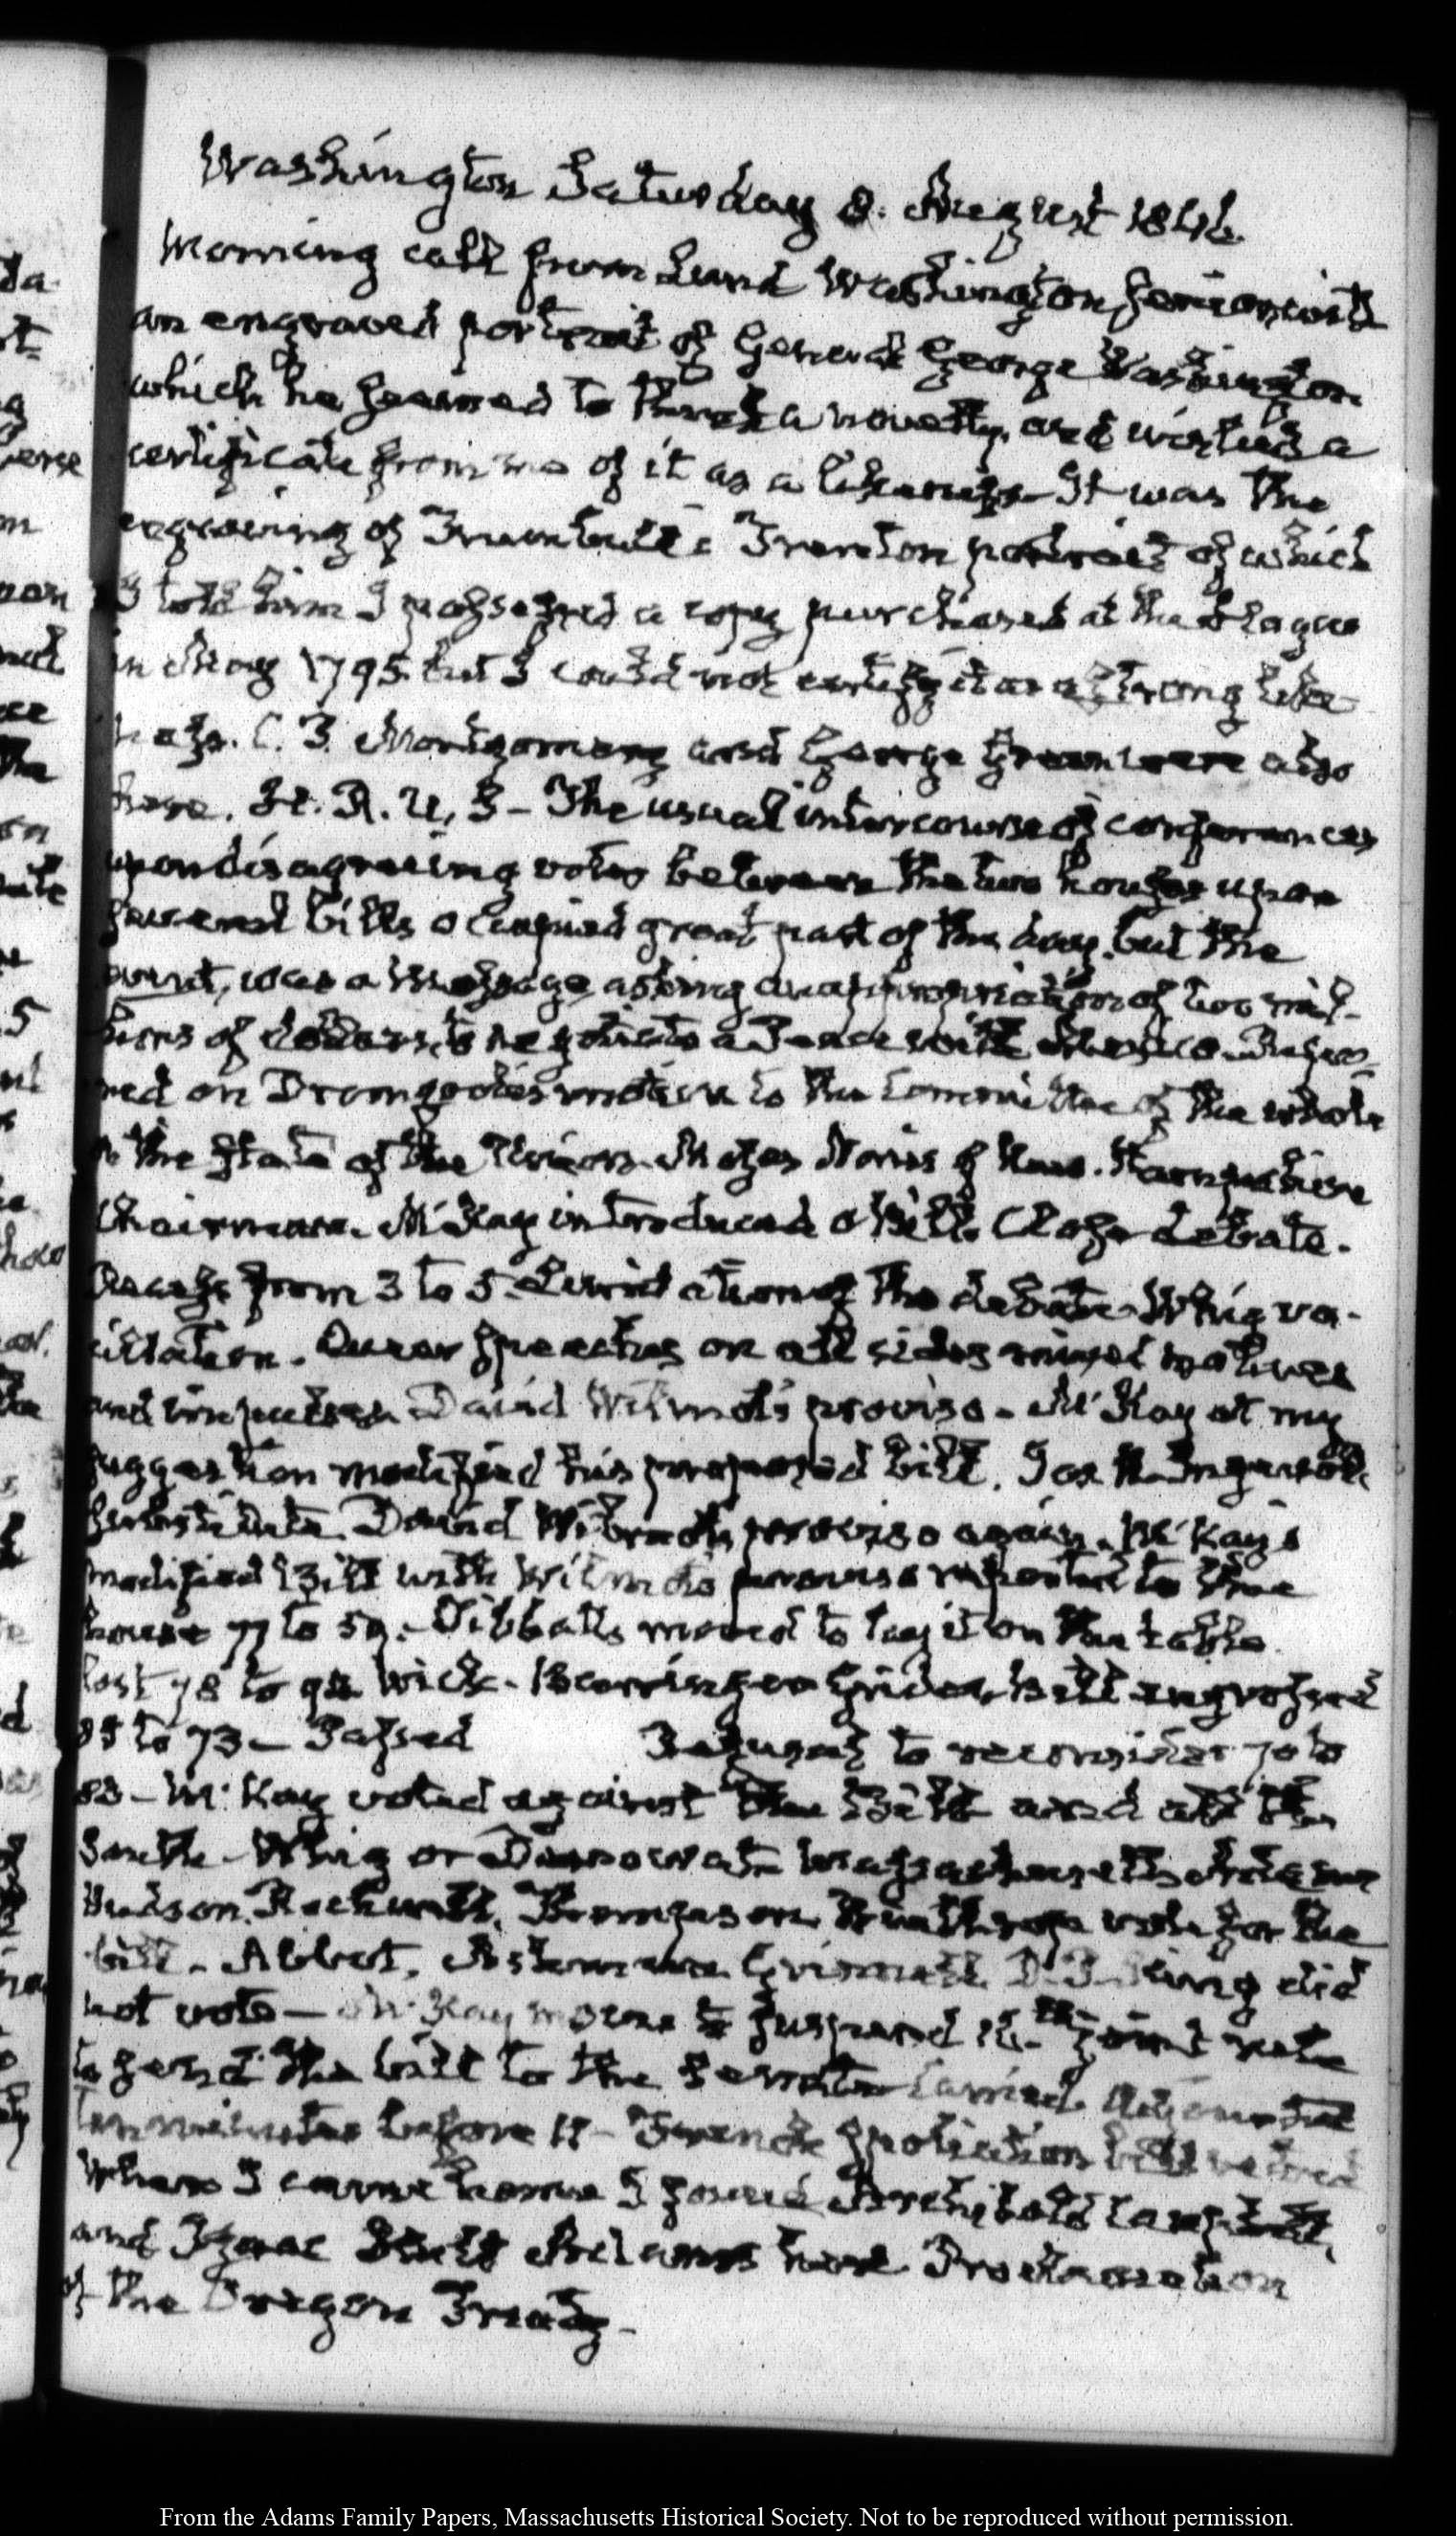 Washington Saturday 8. August 1846.
Morning call from Lund Washington senior with
an engraved portrait of General George Washington
which he seemed to think a novelty, and wished a
certificate from me of it as a likeness. It was the
engraving of Trumbull's Trenton portrait of which
I told him I possessed a copy purchased at the Hague
in May 1795 but I could not certify it as a strong like-
ness. C. B. Montgomery and George Green were also
here. H. R. U. S – The usual intercourse of conferences
upon disagreeing votes between the two houses upon
several bills occupied great part of the day. but the
event, was a message asking an appropriation of two mil-
lions of dollars, to negotiate a Peace with Mexico. Refer-
red on Dromgoole's motion to the Committee of the whole
on the state of the Union. Moses Norris of New. Hampshire
Chairman. McKay introduced a Bill. Close debate.
Recess from 3 to 5. of the debate. Whig va-
cillation. Queer speeches on all sides mixed motives
and impulses. David Wilmot's proviso – McKay at my
suggestion modified his proposed bill. Jos R. Ingersoll
substitute. David Wilmot's proviso again. McKay's
modified Bill with Wilmot's proviso reported to the
house 77 to 59. – Tibbatts moved to lay it on the table
lost 78 to Wick. Barringer Grider Bill engrossed
85 to 73 – Passed Refusal to reconsider 70 to
83 – McKay voted against the Bill and all the
South – Whig or Democrat. Massachusetts
Hudson, Rockwell, Thompson Winthrop vote for the
bill. – Abbot, Ashmun Grinnell D. P. King did
not vote – McKay moved to suspend the 16th joint rule
to send the bill to the Senate carried. Adjourned
ten minutes before 11 – French spoliation bill vetoed
When I came home I found Archibald Campbell,
and Isaac Hull Adams here Proclamation
of the Oregon Treaty –
From the Adams Family Papers, Massachusetts Historical Society. Not to be reproduced without permission.